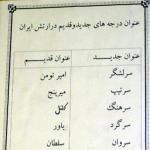 عنوان درجه های جدیدوقدیم درارتش ایران
عنوان جدید عنوان قدیم
سرلشگر امیر تومن
سرتیپ میرپنج
سرهنگ کلنل
سرگرد یاور
سروان سلطان